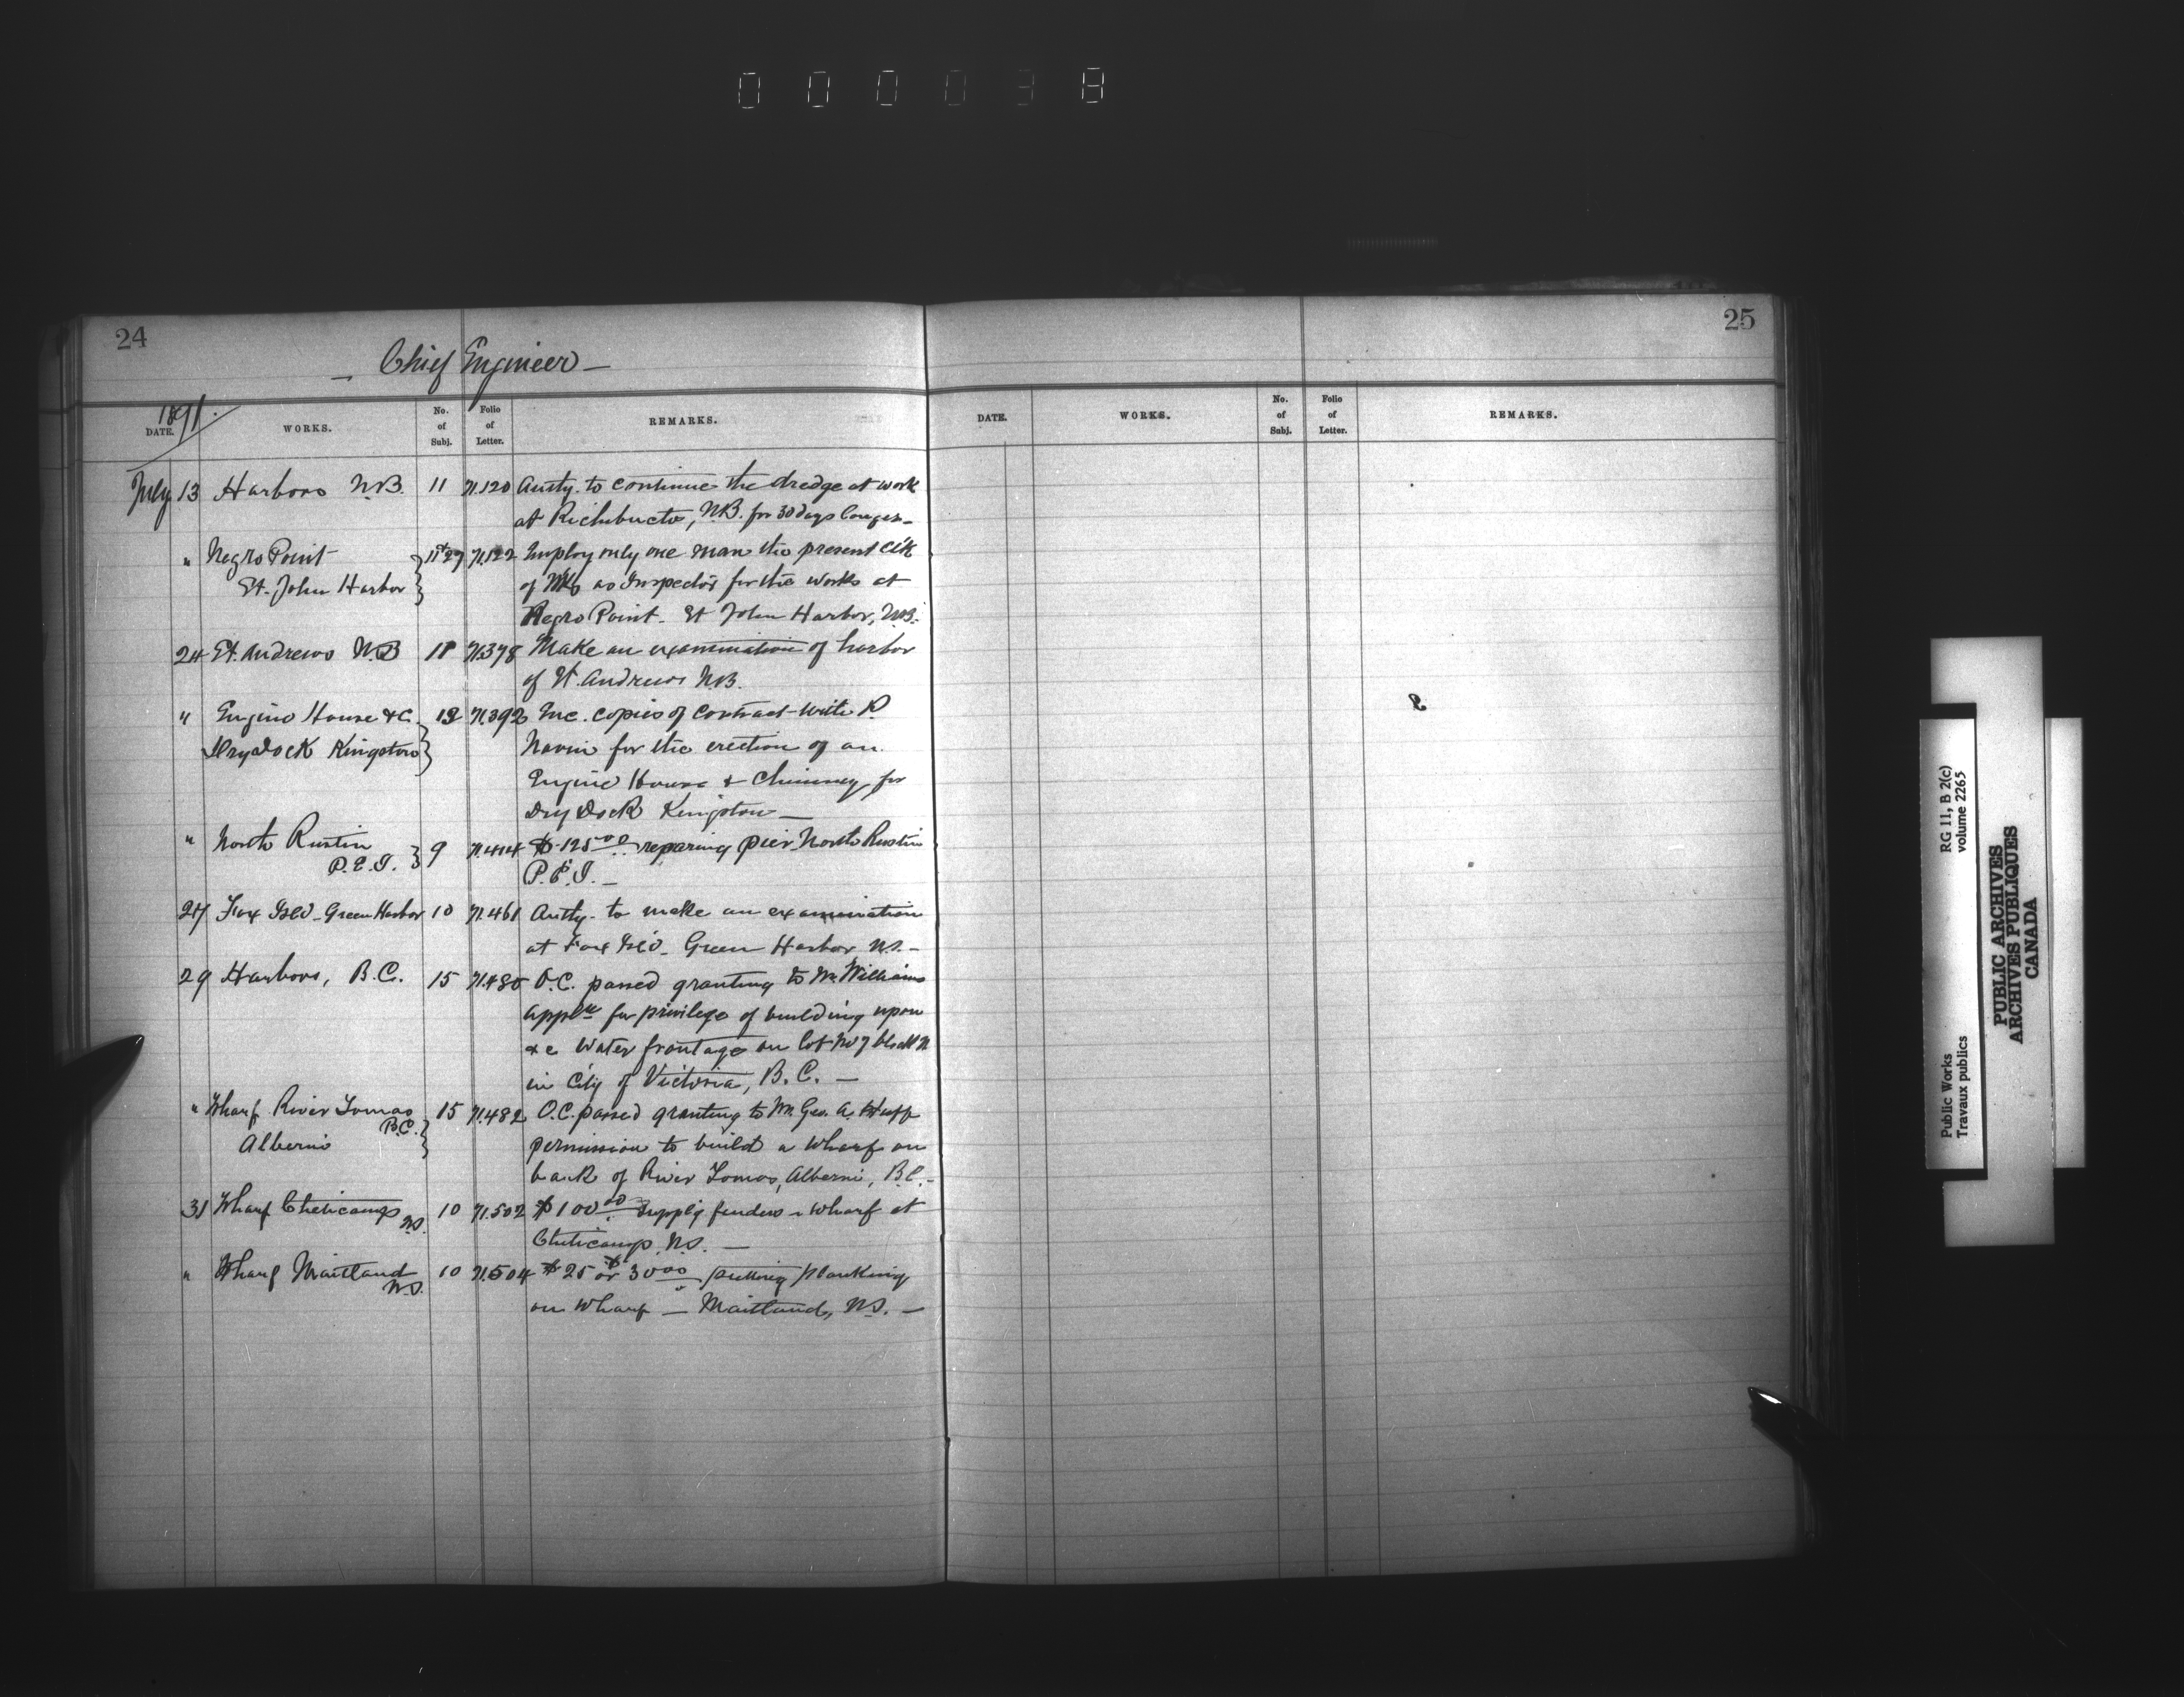 000038
24
Chief Engineer
1891.
DATE. WORKS. No. of Subj. Folio of Letter. REMARKS.
July 13 Harbors N.B. 11 71.120 Auty. to continue the dredge at work
at Richibucto, N.B. for 30 days longer
" Negro Point 11+27 71.122 Employ only one man the present Clk
St. John Harbor of Wks as Inspector for the works at
Negro Point St John Harbor, N.B.
24 St. Andrews N.B 11 71.378 Make an examination of harbor
of St. Andrews N.B.
" Engine House &c. 71.392 Enc. copies of contract with P.
Dry dock Kingston Navin for the erection of an
Engine House & Chimney for
Dry Dock Kingston
" North Rustin 9 71.414 $125 00 reparing pier North Rustin
P.E.I. P.E.I.
27 Fox Isld Green Harbor 10 71.461 Auty. to make an examination
at Fox Isld Green Harbor N.S.
29 Harbors, B.C. 15 71.480 O.C. passed granting to Mr. Williams
appln for privilege of building upon
&c water frontage on lot No 7 block N
in City of Victoria, B.C.
" Wharf River Somas 15 71.482 O.C. passed granting to Mr. Geo. A. Huff
B.C.
Alberni permission to build a wharf on
bank of River Somas, Alberni, B.C.
31 Wharf Cheticamp N.S. 10 71.502 $100 00 supply fenders wharf at
Cheticamp, N.S.
" Wharf Maitland N.S. 10 71.504 $25 or $30 00 putting planking
on wharf Maitland, N.S.
25
DATE. WORKS. No. of Subj. Folio of Letter. REMARKS.
Public Works
Travaux publics
RG 11, B 2(c)
volume 2265
PUBLIC ARCHIVES
ARCHIVES PUBLIQUES
CANADA